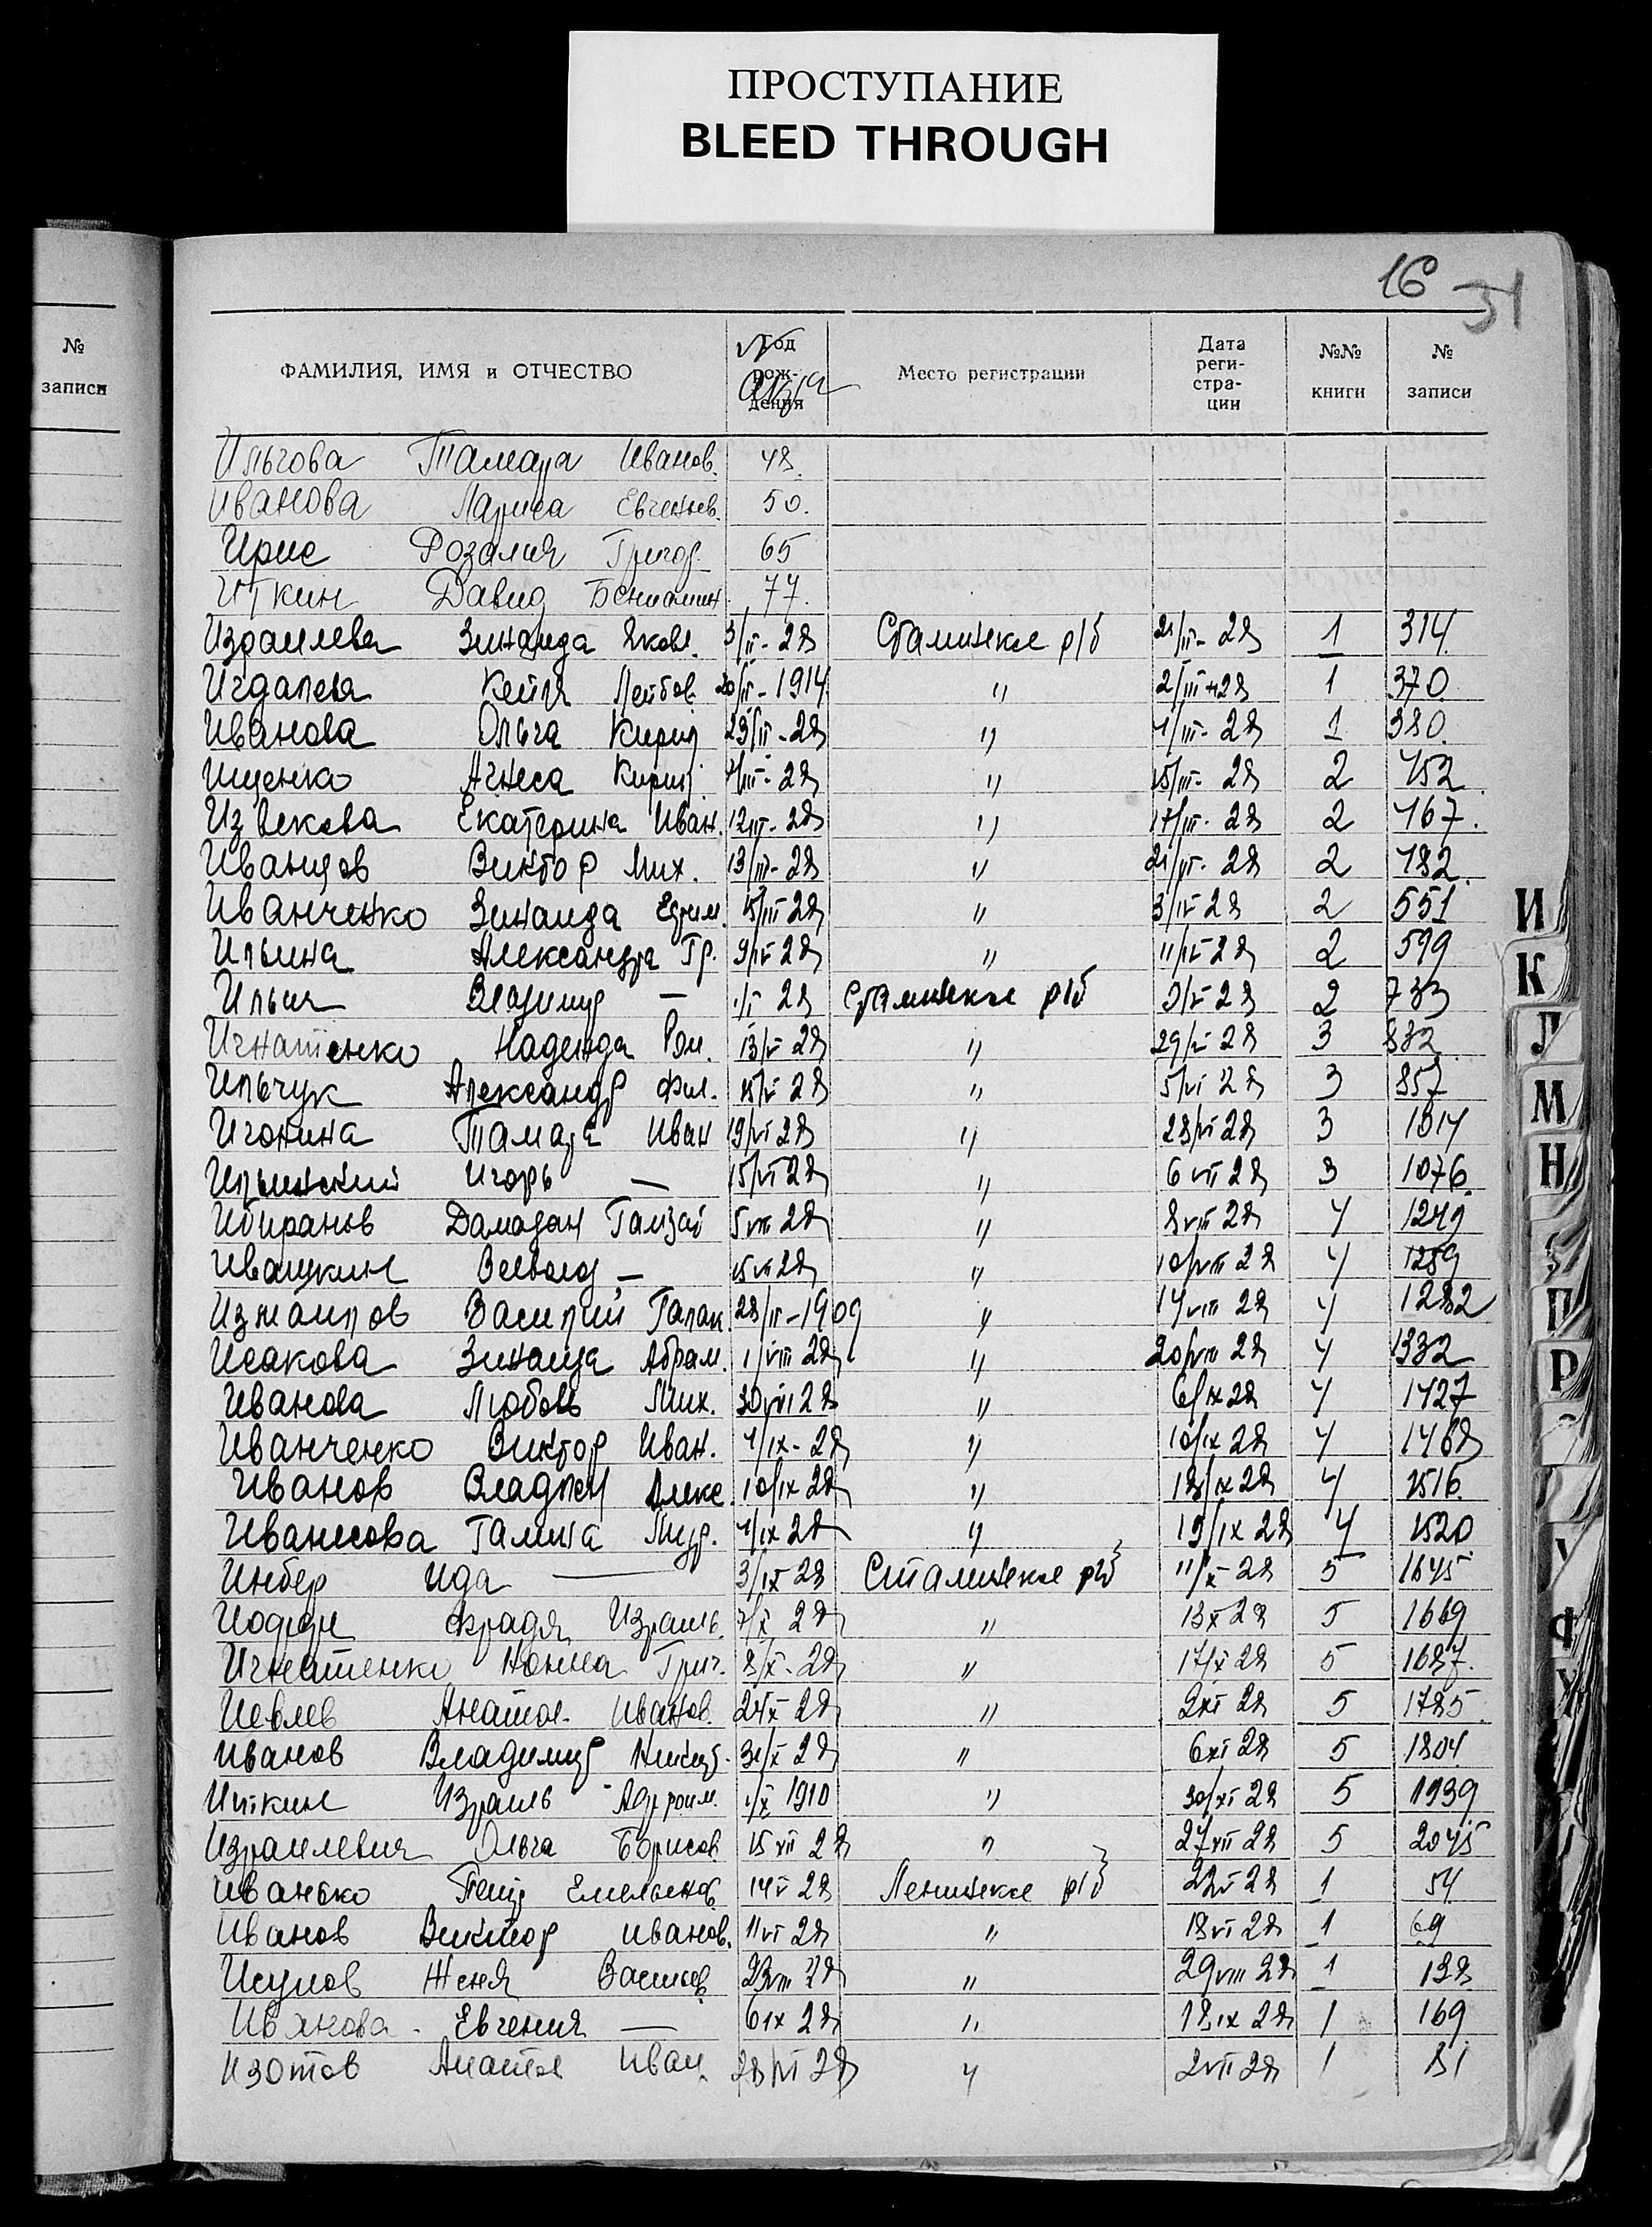 ПРОСТУПАНИЕ
BLEED THROUGH
16 31
№ записи
ФАМИЛИЯ, ИМЯ и ОТЧЕСТВО Год рождения Место регистрации Дата регистрации №№ книги № записи
Ильгова Тамара Иванов. 48.
Иванова Лариса Евгеньев. 50.
Ирис Розалия Григор. 65
Иткин Давид Бениамин. 77.
Израилева Зинаида Яковл. 3/II-28 Сталинское р/б 21/II-28 1 314
Игдалея Кейля Лейбов. 1914 " 2/III-28 1 370
Иванова Ольга Кирил 23/II-28 " 1/III-28 1 380
Ищенко Агнеса Кирил 4/III-28 " 15/III-28 2 452
Извекова Екатерина Иван. 12III-28 " 17/III-28 2 467.
Иванцов Виктор Мих. 13/III-28 " 21/III-28 2 482.
Иванченко Зинаида Ефим. 15/III 28 " 3/IV 28 2 551
Ильина Александра Гр. 9/IV 28 " 11/IV 28 2 599
Ильин Владимир — 28 Сталинское р/б 9/V 28 2 733
Игнатенко Надежда Ром. 13/V 28 " 29/V 28 3 832
Ильчук Александр Фил. 15/V 28 " 5/VI 28 3 857
Игонина Тамара Иван 19/VI 28 " 28/VI 28 3 1014
Ильинский Игорь — 15/VI 28 " 6 VII 28 3 1076.
Ибиранов Дамадан Гамзат 5VIII 28 " 8VIII 28 4 1249
Ивашкин Всеволод — 28 " 10/VIII 28 4 1259
Измаилов Василий 28/II-1909 " 14VIII 28 4 1282
Исакова Зинаида Абрам. 1/VIII 28 " 20/VIII 28 4 1332
Иванова Любовь Мих. 30/VII 28 " 6/IX 28 4 1427
Иванченко Виктор Иван. 4/IX-28 " 10/IX 28 4 1468
Иванов Владлен Алекс. 10/IX 28 " 18/IX 28 4 1516
Иванисова Галина 4/IX 28 " 19/IX 28 4 1520
Инбер Ида — 3/IX 28 Сталинское р/б 11/X-28 5 1645
Фрадя Израиль. 7/X 28 " 13X28 5 1669
Игнатенко Нонна Григ. 8/X-28 " 17/X 28 5 1687.
Иевлев Анатол. Иванов. 24X 28 " 2XI 28 5 1785
Иванов Владимир 31/X 28 " 6XI 28 5 1804
Иткин Израиль 1910 " 30/XI 28 5 1939
Израилевич Ольга Борисов 15 XII 28 " 27XII 28 5 2045
Иванько Петр Емельянов. 14V 28 Ленинское р/б 22V 28 1 54
Иванов Виктор Иванов. 11VI 28 " 18VI 28 1 69
Исупов Женя Васильев 23VIII 28 " 29VIII 28 1 138
Иванова Евгения — 6IX 28 " 18IX 28 1 169
Изотов Анатол Иван. 28/VI 28 " 2VII 28 1 81
И
К
Л
М
Н
П
Р
Ф